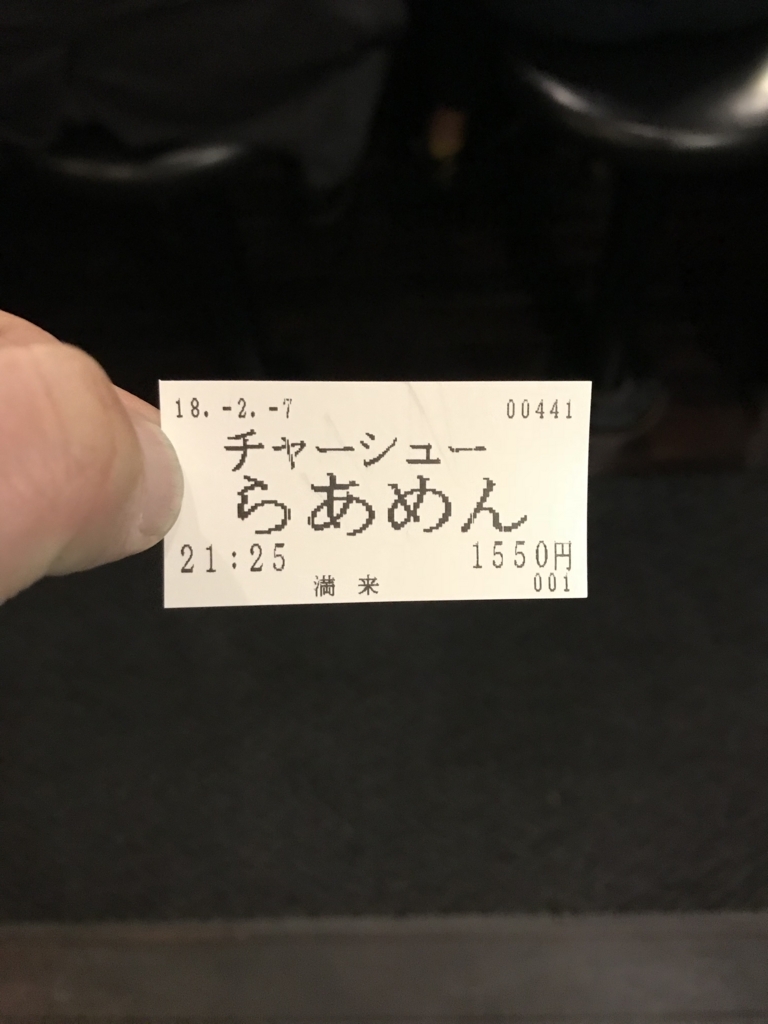 18.-2.-7 00441
チャーシュー
らあめん
21:25 1550円
満来 001